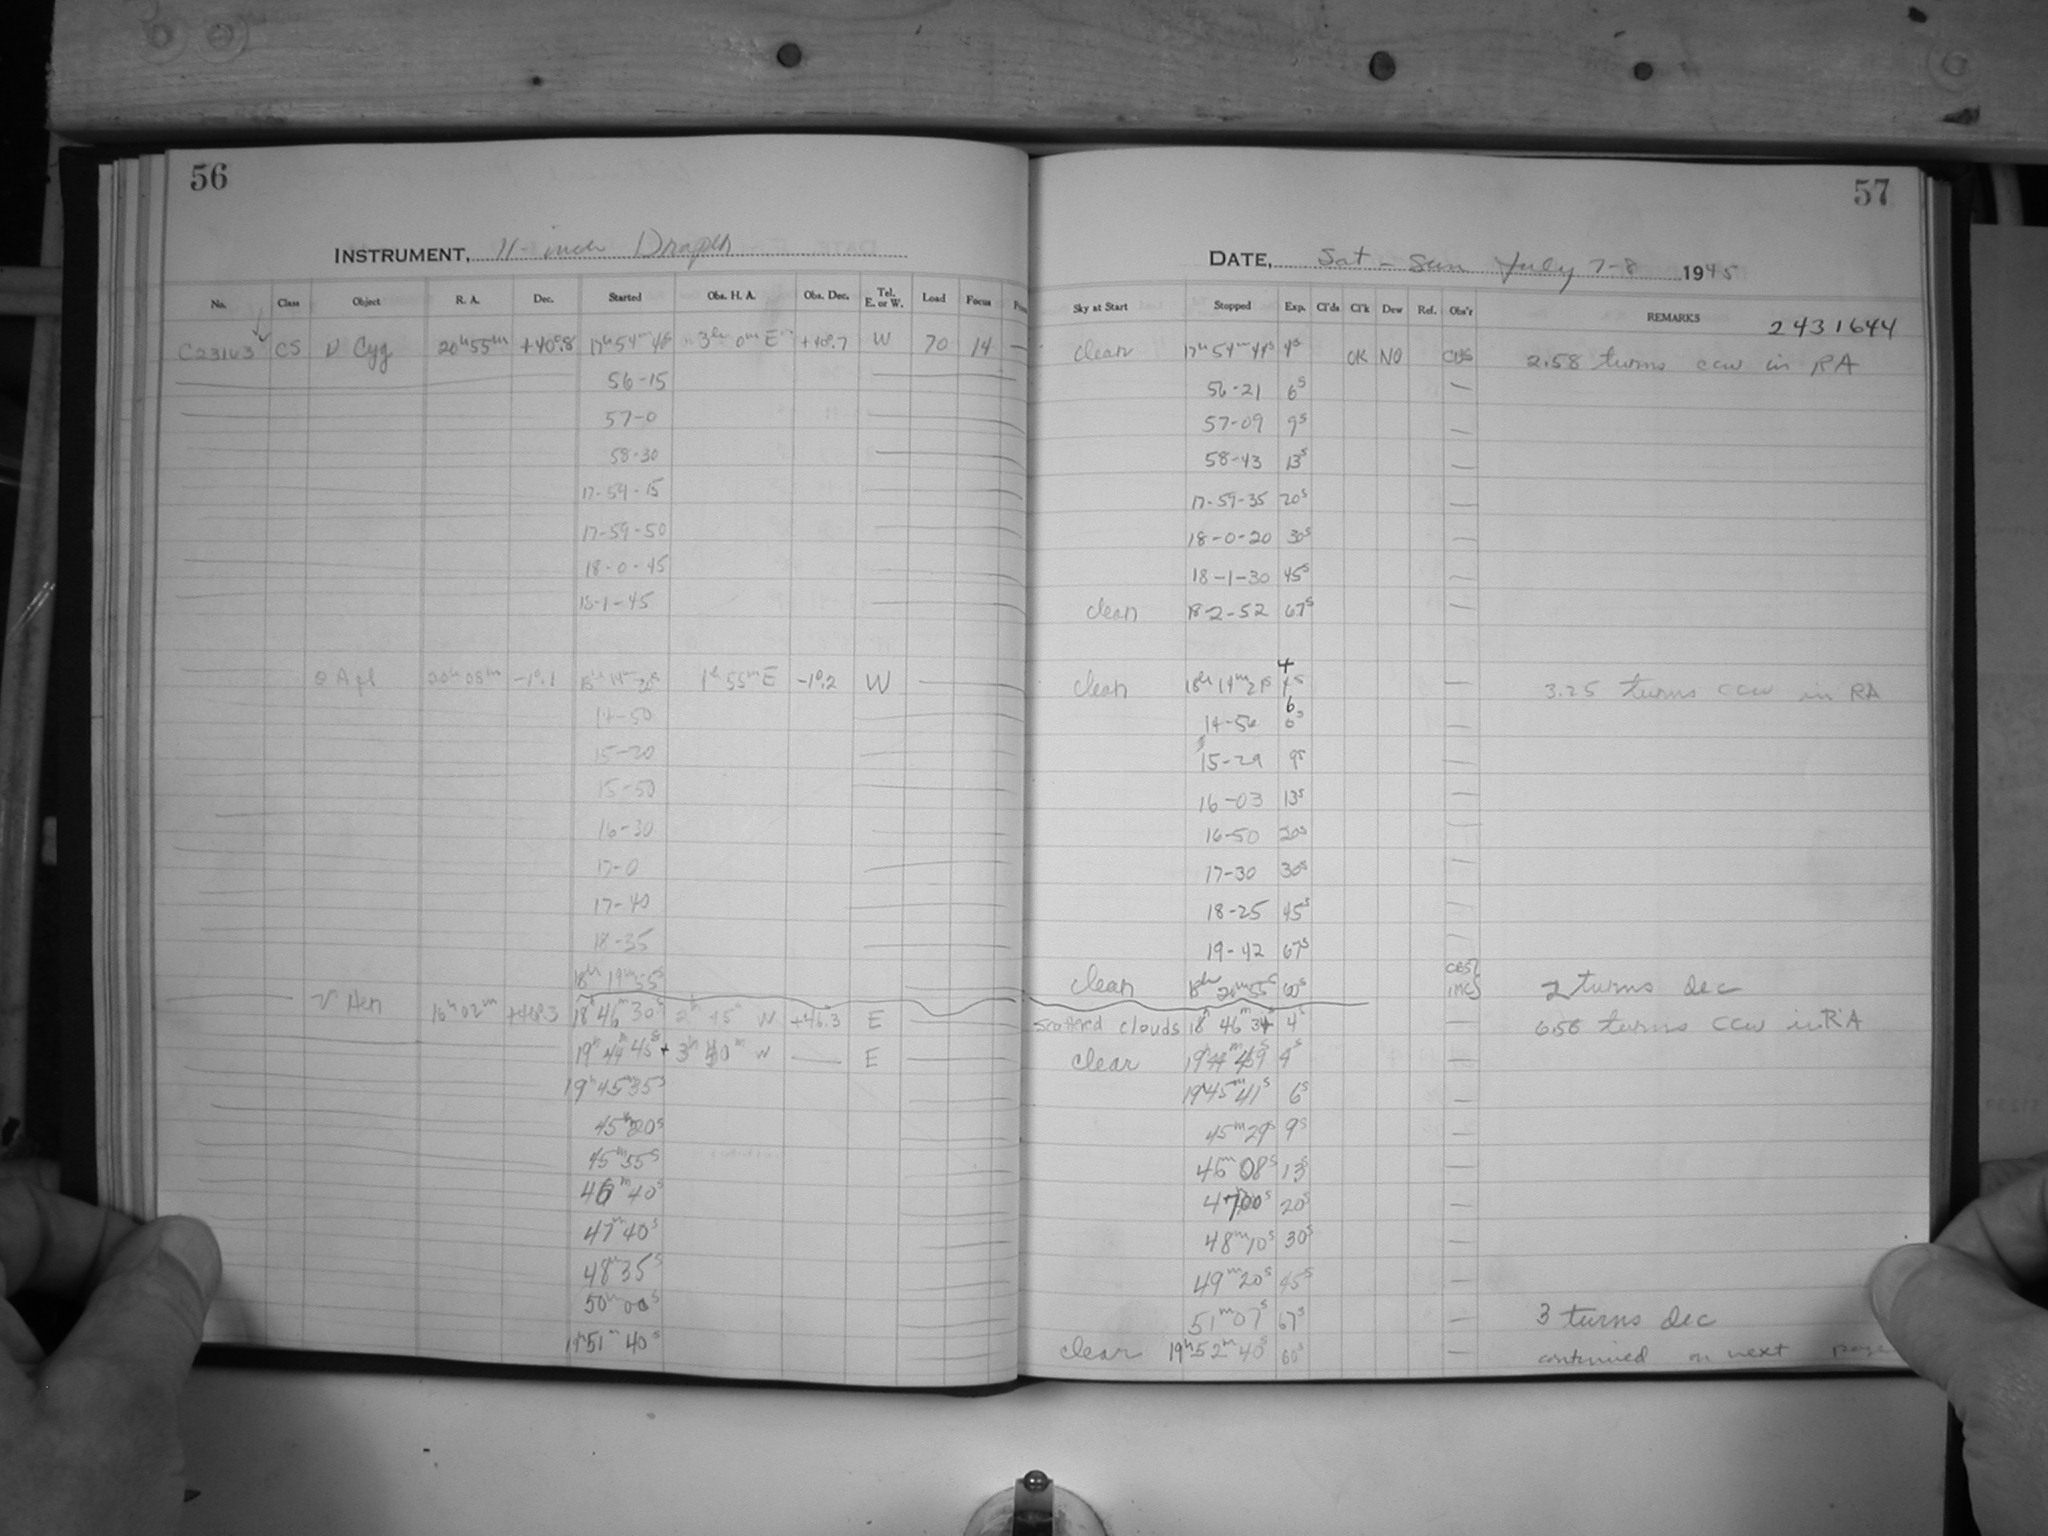 56
INSTRUMENT, 11-inch Draper
No. Class Object R. A. Dec. Started Obs. H. A. Obs. Dec. Tel. E. or W. Load Focus
C23143 CS ν Cyg 20h55m +40°.8 17h54m40s 3h 0m E +40°.7 W 70 14 —
56-15
57-0
58-30
17-59-15
17-59-50
18-0-45
18-1-45
θ Aql 20h08m -1°.1 18h 14m 1h 55m E -1°.2 W
14-50
15-20
15-50
16-30
17-0
17-40
18-35
18h 19m 55s
υ Her 16h02m +46°.3 18h 46m 30s 2h 45m W +46.3 E
19h 44m 45s 3h W — E
19h45m35s
45m20s
45m55s
46m40s
47m40s
48m35s
50m00s
19h51m40s
57
DATE, Sat - Sun July 7-8 1945
Sky at Start Stopped Exp. Cl'ds Cl'k Dew Ref. Obs'r REMARKS 2431644
Clear 17h 54m 44s 4s OK NO CBS 2.58 turns ccw in RA
56-21 6s —
57-09 9s —
58-43 13s —
17-59-35 20s —
18-0-20 30s —
18-1-30 45s —
clear 18-2-52 67s —
4
clear 18h 14m 4s — 3.25 turns ccw in RA
6
14-56 6s —
15-29 9s —
16-03 13s —
16-50 20s —
17-30 30s —
18-25 45s —
19-42 67s —
clear 18h 20m 55s 60s CBS IMC 2 turns dec
scattered clouds 18h 46m 34s 4s — 6.56 turns ccw in RA
clear 19h 44m 49s 4s —
19h45m41s 6s —
45m29s 9s —
46m08s 13s —
47m00s 20s —
48m10s 30s —
49m20s 45s —
51m07s 67s — 3 turns dec
clear 19h52m40s 60s — continued on next page